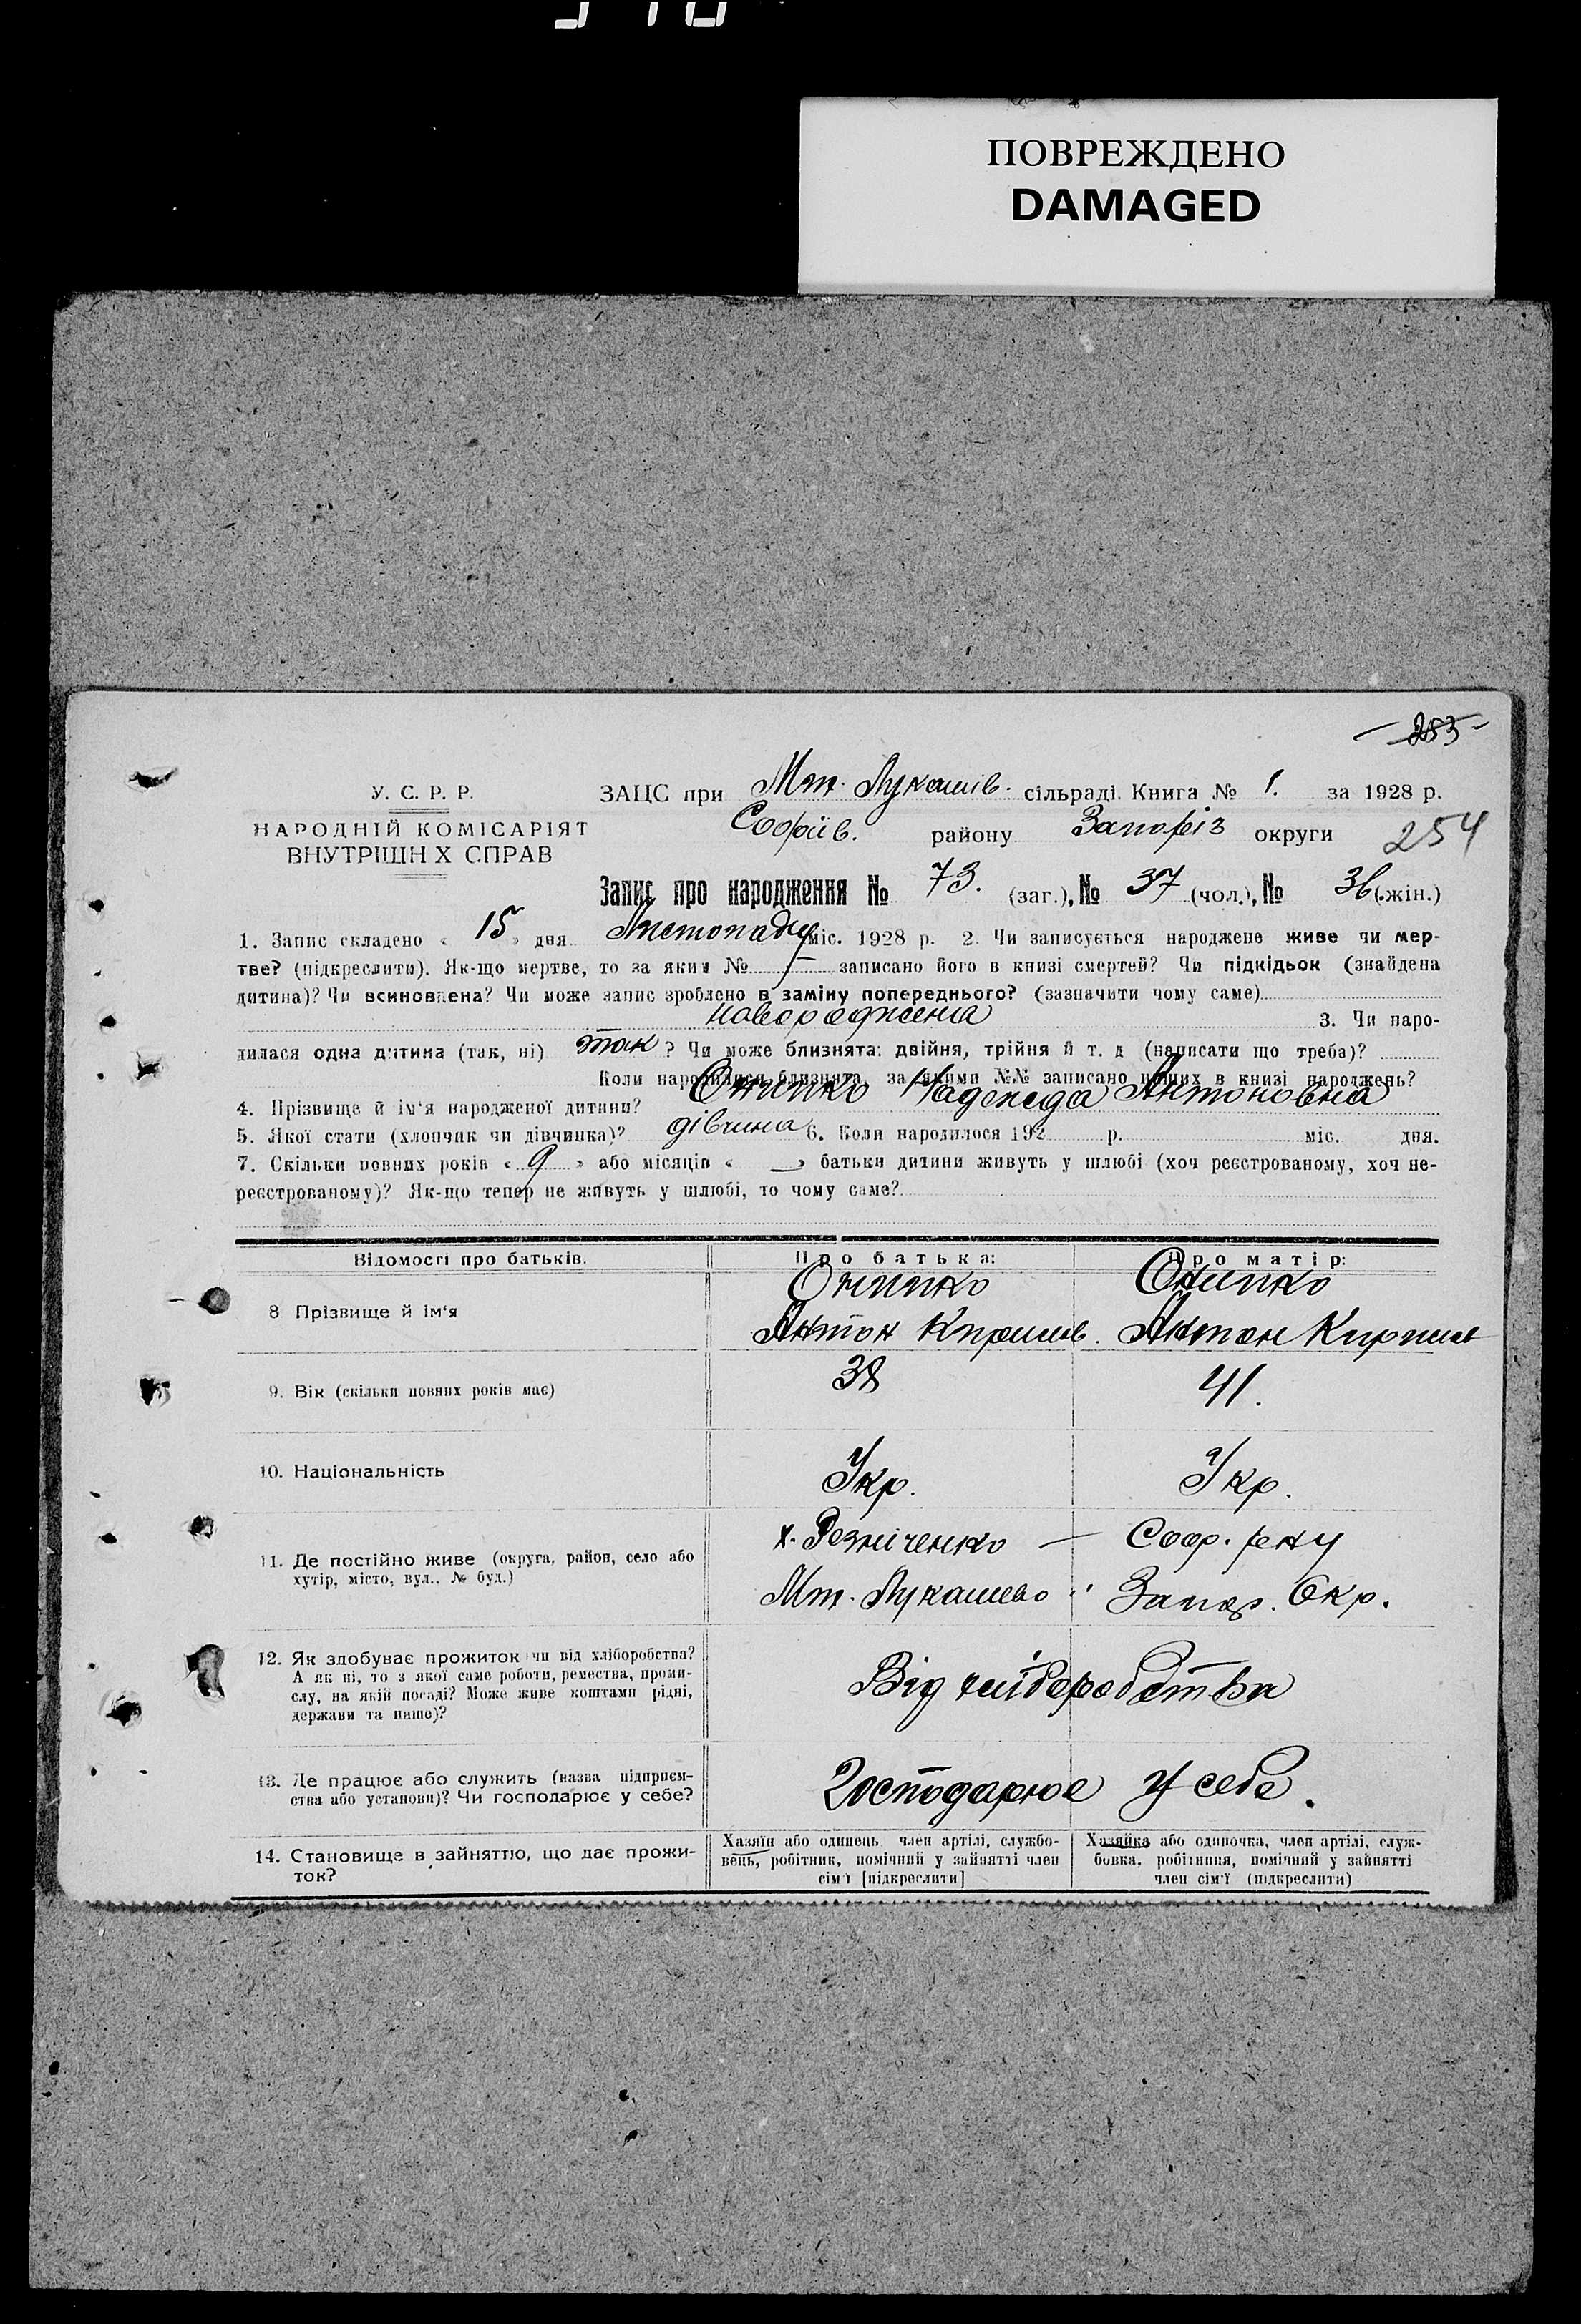 ПОВРЕЖДЕНО
DAMAGED
253
У. С. Р. Р.
НАРОДНІЙ КОМІСАРІЯТ
ВНУТРІШН Х СПРАВ
ЗАЦС при Мт. Лукашів. сільраді. Книга № 1. за 1928 р.
Софіїв. району Запоріз округи 254
Запис про народження № 73. (заг.), № 37 (чол.), № 36 (жін.)
1. Запис складено « 15 » дня Листопаду міс. 1928 р. 2. Чи записується народжене живе чи мер-
тве? (підкреслити). Як-що мертве, то за яким № — записано його в книзі смертей? Чи підкідьок (знайдена
дитина)? Чи всиновлена? Чи може запис зроблено в заміну попереднього? (зазначити чому саме)
новороджена 3. Чи наро-
дилася одна дитина (так, ні) так ? Чи може близнята: двійня, трійня й т. д (написати що треба)?
Коли народилися близнята, за якими №№ записано інших в книзі народжень?
4. Прізвище й ім'я народженої дитини? Онипко Надежда Антоновна
5. Якої стати (хлопчик чи дівчинка)? дівчина 6. Коли народилося 192 р. міс. дня.
7. Скільки повних років « 9 » або місяців « — » батьки дитини живуть у шлюбі (хоч реєстрованому, хоч не-
реєстрованому)? Як-що тепер не живуть у шлюбі, то чому саме?
Відомості про батьків. Про батька: Про матір:
Онипко Онипко
8 Прізвище й ім'я
Антон Кирилов. Антон Кирилов
9. Вік (скільки повних років має) 38 41.
10. Національність Укр. Укр.
х. Резніченко — Соф. р-ну
11. Де постійно живе (округа, район, село або
хутір, місто, вул., № буд.)
Мт. Лукашево " Запор. Окр.
12. Як здобуває прожиток (чи від хліборобства?
А як ні, то з якої саме роботи, ремества, проми-
слу, на якій посаді? Може живе коштами рідні,
держави та инше)?
Від хліборобства
13. Де працює або служить (назва підприєм-
ства або установи)? Чи господарює у себе?
Господарює у себе.
14. Становище в зайняттю, що дає прожи-
ток?
Хазяїн або одинець член артілі, службо-
вець, робітник, помічний у зайнятті член
сім'ї [підкреслити]
Хазяйка або одиночка, член артілі, служ-
бовка, робітниця, помічний у зайнятті
член сім'ї (підкреслити)